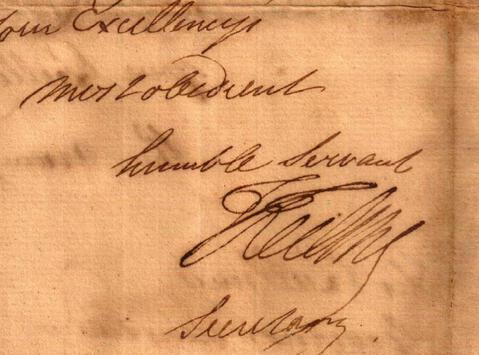 Your Excellencys
most obedient
humble Servant
Secretary